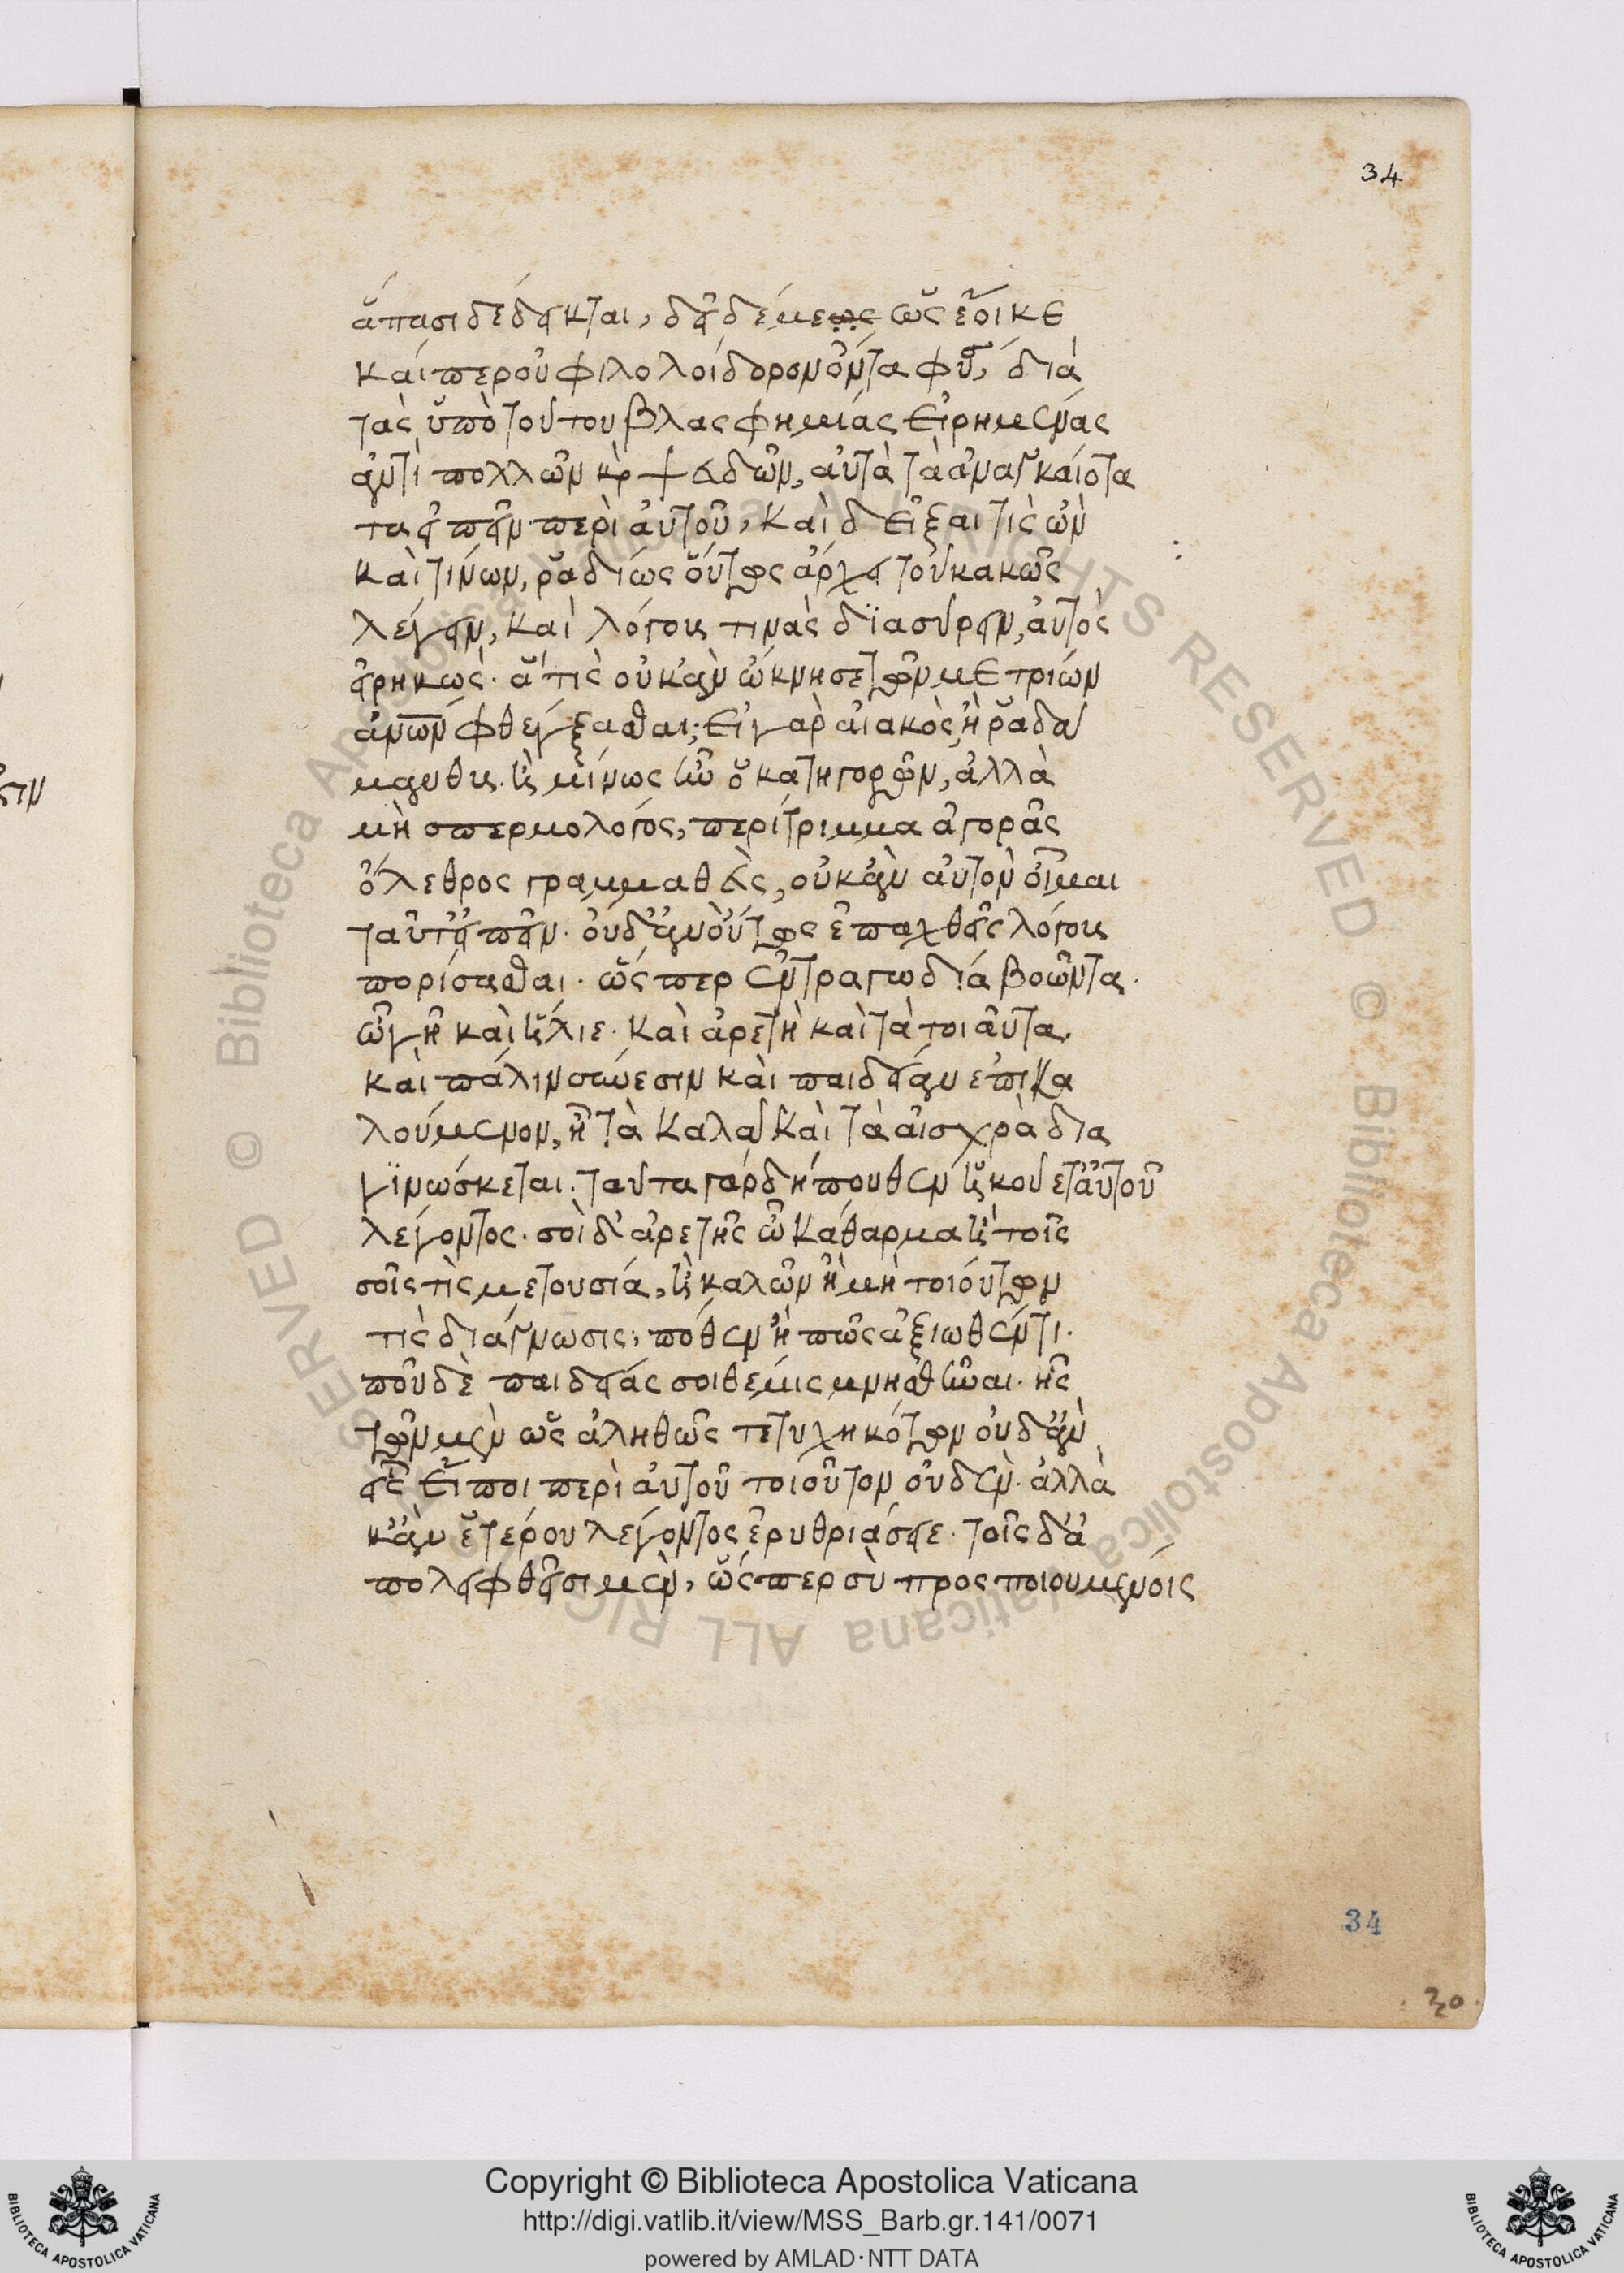 34
ἅπασι δέδεικται, δεῖ δέ με ὡς ἔοικε
καίπερ οὐ φιλολοίδορον ὄντα φύσ, διὰ
τὰς ὑπὸ τούτου βλασφημίας εἰρημένας
ἀντὶ πολλῶν κὴ ψευδῶν, αὐτὰ τὰ ἀναγκαιότα
τα εἰπεῖν περὶ αὐτοῦ, καὶ δεῖξαι τὶς ὢν
καὶ τίνων, ῥαδίως οὕτως ἄρχει τοῦ κακῶς
λέγειν, καὶ λόγους τινὰς διασύρειν, αὐτὸς
εἰρηκὼς· ἅ τις οὐκ ἂν ὤκνησε τῶν μετρίων
ἀνων φθέγξασθαι; εἰ γὰρ αἰακὸς ἢ ῥαδά
μανθυς· ἢ μίνως ἦν ὁ κατηγορῶν, ἀλλὰ
μὴ σπερμολόγος, περίτριμμα ἀγορᾶς
ὄλεθρος γραμματεὺς, οὐκ ἂν αὐτὸν οἶμαι
ταῦτ' εἰπεῖν· οὐδ' ἂν οὕτως ἐπαχθεῖς λόγους
πορίσασθαι· ὥσπερ ἐν τραγωδία βοῶντα·
ὦ γῆ καὶ ἥλιε· καὶ ἀρετὴ καὶ τὰ τοιαῦτα.
καὶ πάλιν σύνεσιν καὶ παιδείαν ἐπικα
λούμενον, ἧ τὰ καλὰ καὶ τὰ αἰσχρὰ δια
γινώσκεται. ταῦτα γὰρ δήπουθεν ἠκούετ' αὐτοῦ
λέγοντος. σοὶ δ' ἀρετῆς ὦ κάθαρμα ἢ τοῖς
σοῖς τὶς μετουσία, ἢ καλῶν ἢ μὴ τοιούτων
τὶς διάγνωσις; πόθεν ἢ πῶς ἀξιωθέντι.
ποῦ δὲ παιδείας σοι θέμις μνησθῆναι. ἧς
τῶν μὲν ὡς ἀληθῶς τετυχηκότων οὐδ' ἂν
εἷς εἴποι περὶ αὐτοῦ τοιοῦτον οὐδὲν. ἀλλὰ
κἂν ἑτέρου λέγοντος ἐρυθριάσειε. τοῖς δ' ἀ
πολειφθεῖσι μὲν, ὥσπερ σὺ προσποιουμένοις
34
30
Copyright © Biblioteca Apostolica Vaticana
http://digi.vatlib.it/view/MSS_Barb.gr.141/0071
powered by AMLAD·NTT DATA